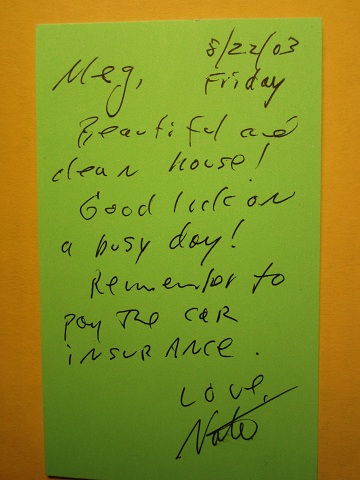 8/22/03
Meg, Friday
Beautiful and
clean house!
Good luck on
a busy day!
Remember to
pay the car
insurance.
Love,
Nate